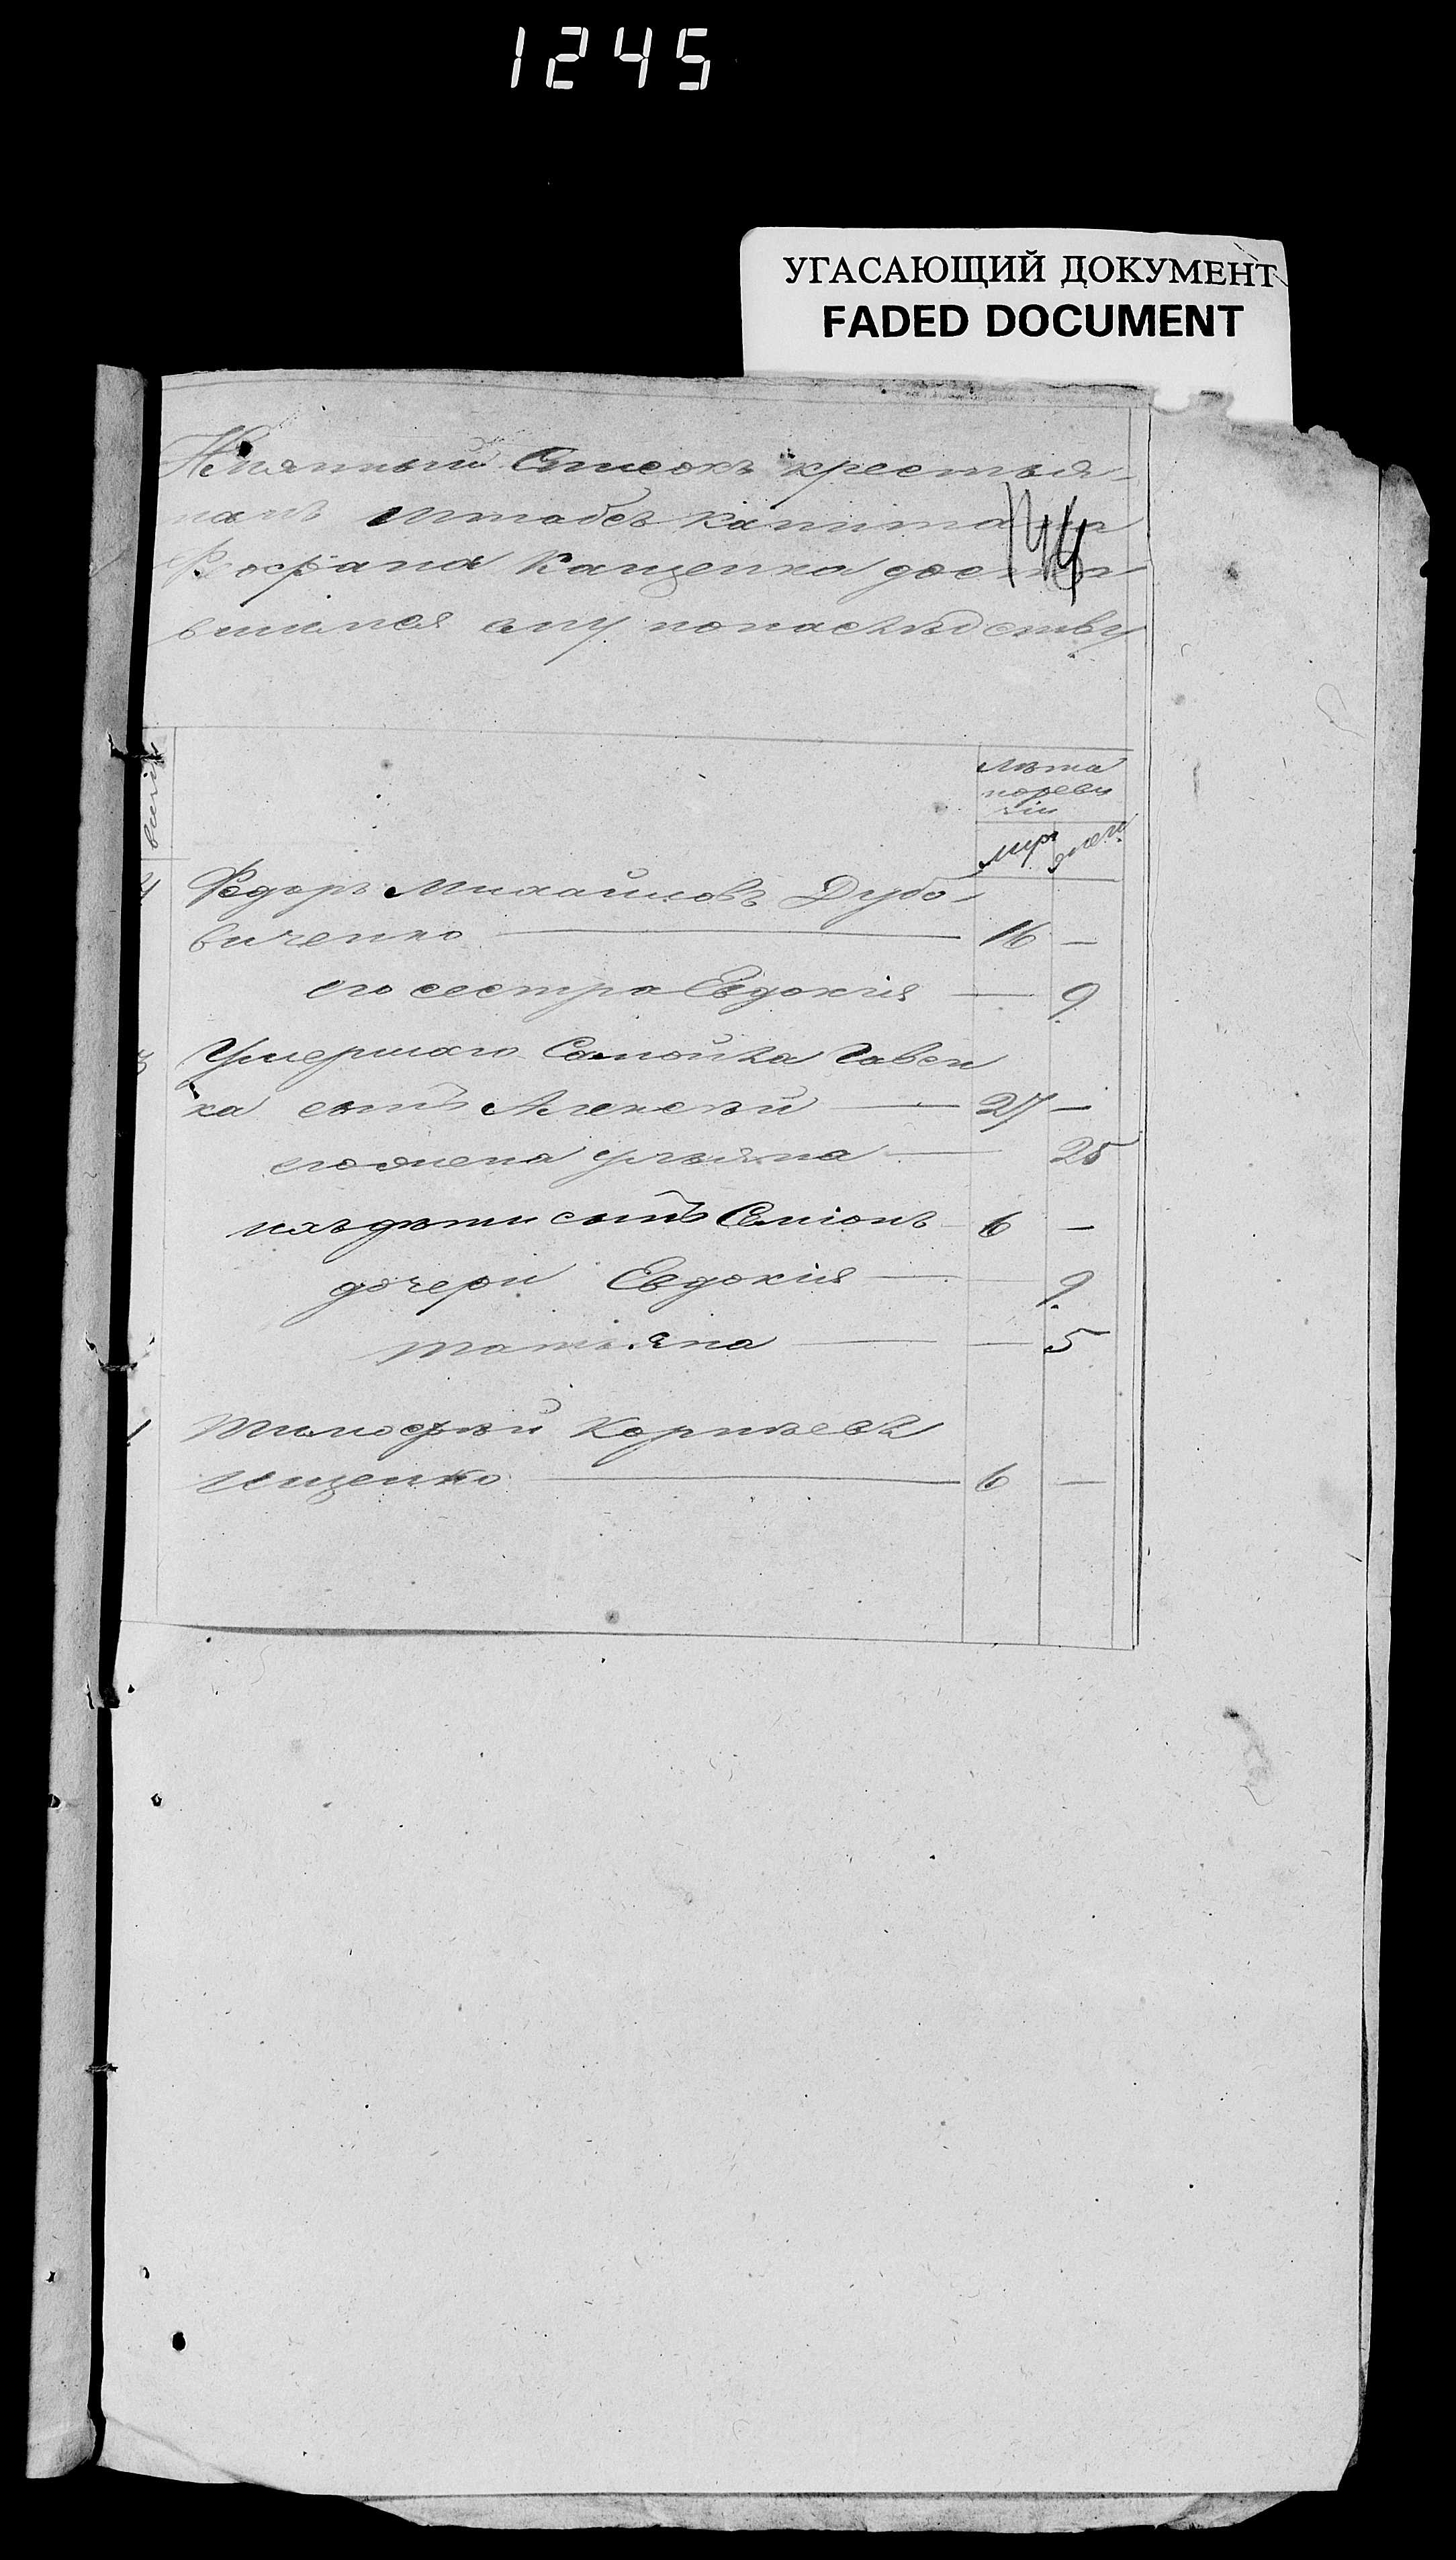 1245
УГАСАЮЩИЙ ДОКУМЕНТ
FADED DOCUMENT
Имянный Список крестья-
намъ Штабсъ Капитана
Феофана Кащенка доста
вшимся ему понаслѣдству
144
лѣта
поревиз
іи
муж женс.
Федоръ Михайловъ Дубо-
виченко 16 —
его сестра Евдокия — 9
Умершаго Самойла Савен
ка сынъ Алексѣй 27 —
его жена Ульяна 25
ихъ дѣти сынъ Семіонъ 6 —
дочери Евдокия — 9
Татьяна — 5
Тимофѣй Корнѣевъ
Ищенко 6 —